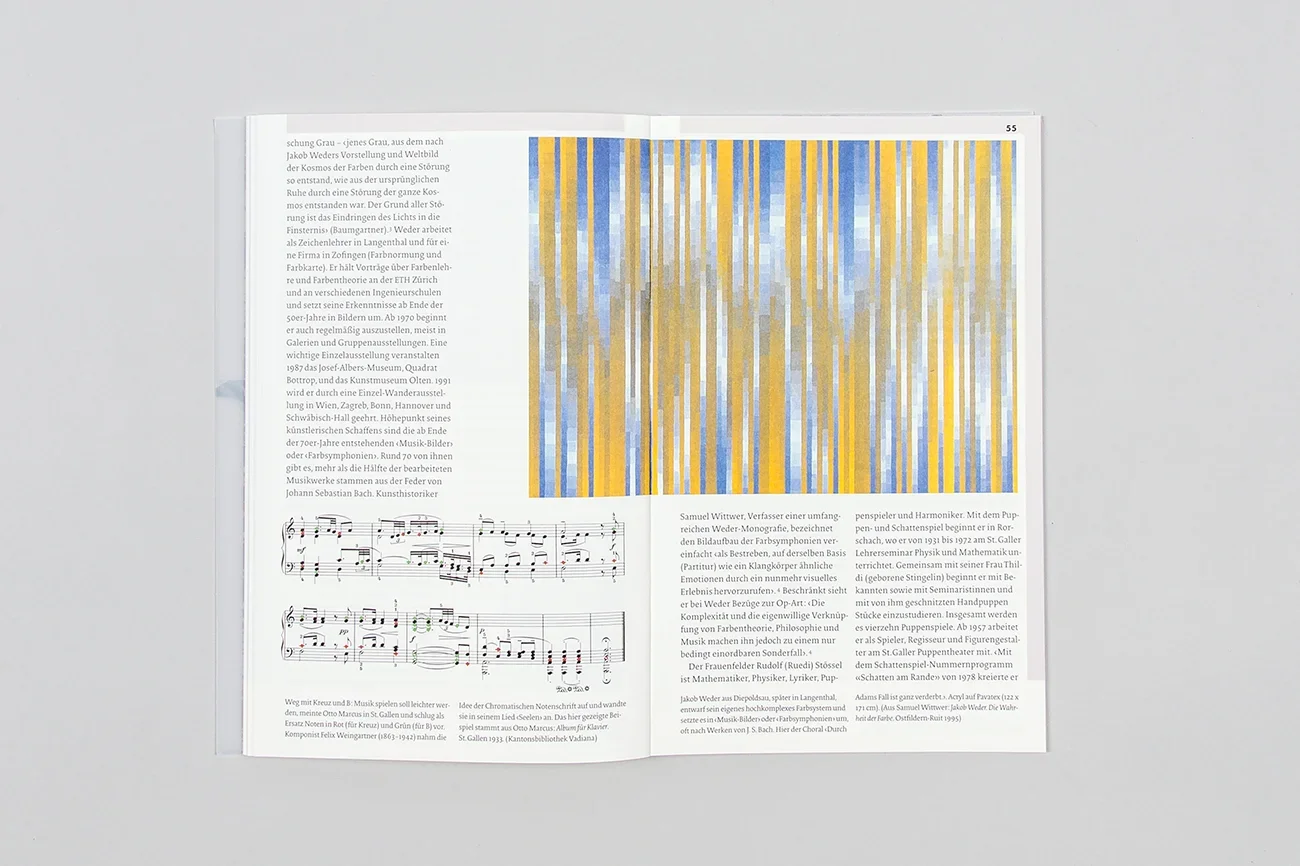 schung Grau – ‹jenes Grau, aus dem nach
Jakob Weders Vorstellung und Weltbild
der Kosmos der Farben durch eine Störung
so entstand, wie aus der ursprünglichen
Ruhe durch eine Störung der ganze Kos-
mos entstanden war. Der Grund aller Stö-
rung ist das Eindringen des Lichts in die
Finsternis› (Baumgartner).³ Weder arbeitet
als Zeichenlehrer in Langenthal und für ei-
ne Firma in Zofingen (Farbnormung und
Farbkarte). Er hält Vorträge über Farbenleh-
re und Farbentheorie an der ETH Zürich
und an verschiedenen Ingenieurschulen
und setzt seine Erkenntnisse ab Ende der
50er-Jahre in Bildern um. Ab 1970 beginnt
er auch regelmäßig auszustellen, meist in
Galerien und Gruppenausstellungen. Eine
wichtige Einzelausstellung veranstalten
1987 das Josef-Albers-Museum, Quadrat
Bottrop, und das Kunstmuseum Olten. 1991
wird er durch eine Einzel-Wanderausstel-
lung in Wien, Zagreb, Bonn, Hannover und
Schwäbisch-Hall geehrt. Höhepunkt seines
künstlerischen Schaffens sind die ab Ende
der 70er-Jahre entstehenden ‹Musik-Bilder›
oder ‹Farbsymphonien›. Rund 70 von ihnen
gibt es, mehr als die Hälfte der bearbeiteten
Musikwerke stammen aus der Feder von
Johann Sebastian Bach. Kunsthistoriker
mf
f
pp
f
Weg mit Kreuz und B: Musik spielen soll leichter wer-
den, meinte Otto Marcus in St. Gallen und schlug als
Ersatz Noten in Rot (für Kreuz) und Grün (für B) vor.
Komponist Felix Weingartner (1863–1942) nahm die
Idee der Chromatischen Notenschrift auf und wandte
sie in seinem Lied ‹Seelen› an. Das hier gezeigte Bei-
spiel stammt aus Otto Marcus: Album für Klavier.
St. Gallen 1933. (Kantonsbibliothek Vadiana)
55
Samuel Wittwer, Verfasser einer umfang-
reichen Weder-Monografie, bezeichnet
den Bildaufbau der Farbsymphonien ver-
einfacht ‹als Bestreben, auf derselben Basis
(Partitur) wie ein Klangkörper ähnliche
Emotionen durch ein nunmehr visuelles
Erlebnis hervorzurufen›.⁴ Beschränkt sieht
er bei Weder Bezüge zur Op-Art: ‹Die
Komplexität und die eigenwillige Verknüp-
fung von Farbentheorie, Philosophie und
Musik machen ihn jedoch zu einem nur
bedingt einordbaren Sonderfall›.⁴
Der Frauenfelder Rudolf (Ruedi) Stössel
ist Mathematiker, Physiker, Lyriker, Pup-
penspieler und Harmoniker. Mit dem Pup-
pen- und Schattenspiel beginnt er in Ror-
schach, wo er von 1931 bis 1972 am St. Galler
Lehrerseminar Physik und Mathematik un-
terrichtet. Gemeinsam mit seiner Frau Thil-
di (geborene Stingelin) beginnt er mit Be-
kannten sowie mit Seminaristinnen und
mit von ihm geschnitzten Handpuppen
Stücke einzustudieren. Insgesamt werden
es vierzehn Puppenspiele. Ab 1957 arbeitet
er als Spieler, Regisseur und Figurengestal-
ter am St. Galler Puppentheater mit. ‹Mit
dem Schattenspiel-Nummernprogramm
«Schatten am Rande» von 1978 kreierte er
Jakob Weder aus Diepoldsau, später in Langenthal,
entwarf sein eigenes hochkomplexes Farbsystem und
setzte es in ‹Musik-Bilder› oder ‹Farbsymphonien› um,
oft nach Werken von J. S. Bach. Hier der Choral ‹Durch
Adams Fall ist ganz verderbt.›. Acryl auf Pavatex (122 x
171 cm). (Aus Samuel Wittwer: Jakob Weder. Die Wahr-
heit der Farbe. Ostfildern-Ruit 1995)